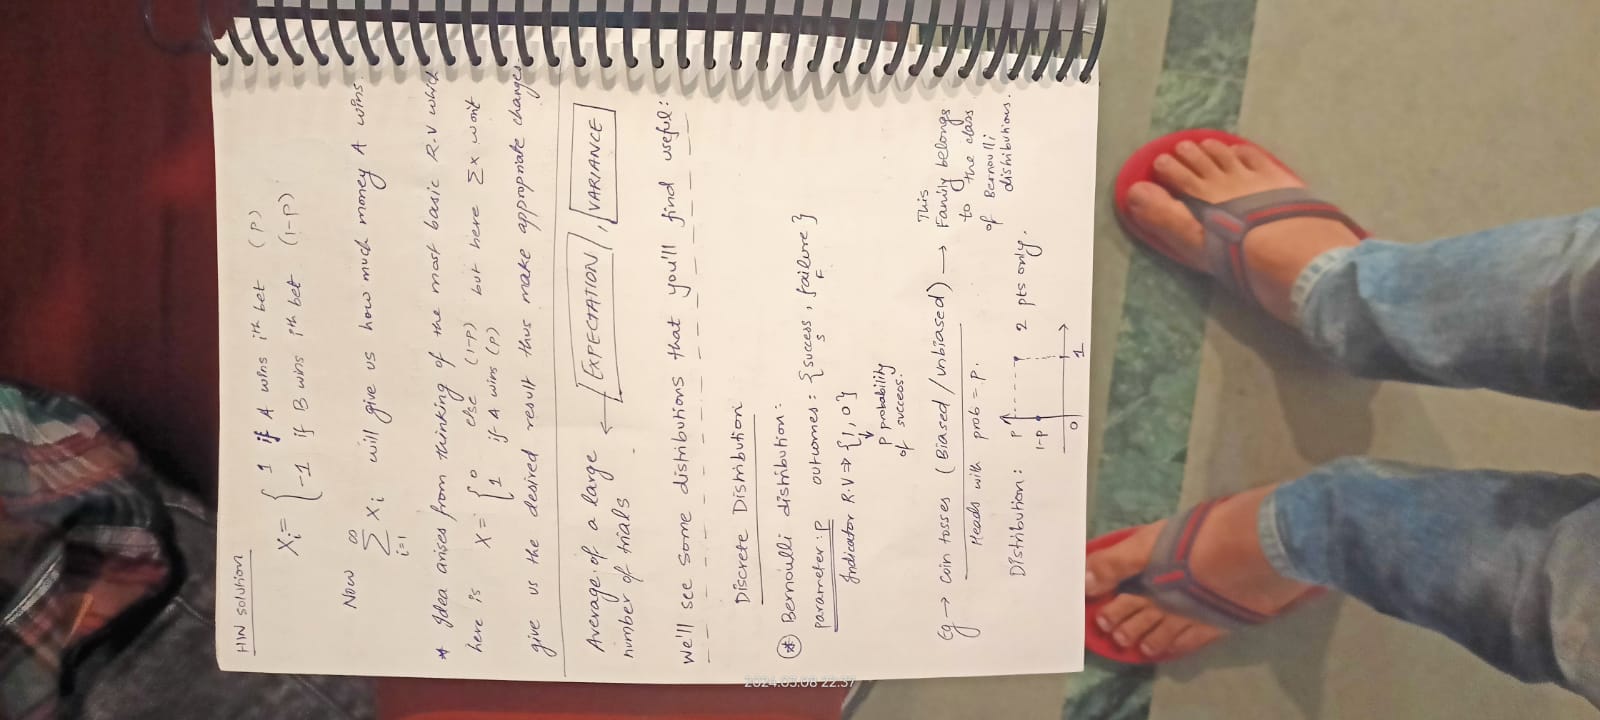 HW solution
Xi = { 1 if A wins ith bet (P)
-1 if B wins ith bet (1-P)
Now ∞
Σ Xi will give us how much money A wins.
i=1
* Idea arises from thinking of the most basic R.V which
here is X = { 0 else (1-P) but here Σx won't
1 if A wins (P)
give us the desired result thus make appropriate changes.
Average of a large ← EXPECTATION, VARIANCE
number of trials
We'll see some distributions that you'll find useful:
Discrete Distribution
* Bernoulli distribution:
parameter: p outcomes: {success, failure}
S F
Indicator R.V ⇒ {1, 0}
↓
P probability
of success.
Eg → Coin tosses (Biased/unbiased) → This
Family belongs
to the class
of Bernoulli
distributions.
Heads with prob = p.
Distribution: P 2 pts only.
1-P
0 1